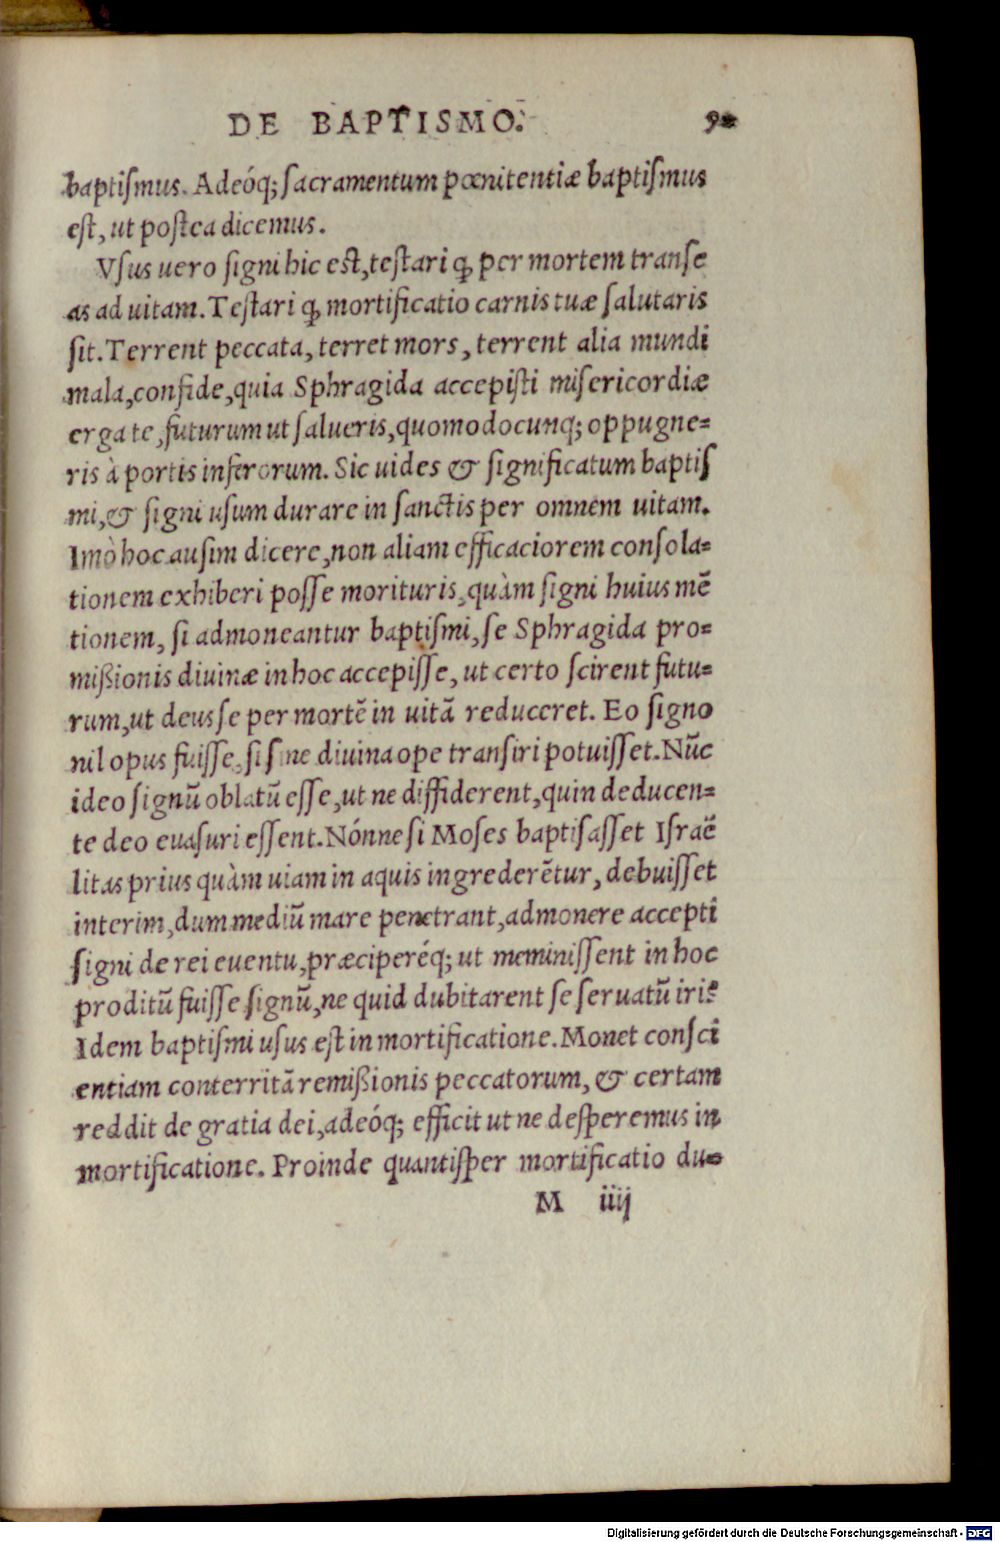 DE BAPTISMO.
baptiſmus. Adeóq; ſacramentum pœnitentiæ baptiſmus
eſt, ut poſtea dicemus.
Vſus uero ſigni hic eſt, teſtari ꝙ per mortem tranſe
as ad uitam. Teſtari ꝙ mortificatio carnis tuæ ſalutaris
ſit. Terrent peccata, terret mors, terrent alia mundi
mala, confide, quia Sphragida accepiſti miſericordiæ
erga te, futurum ut ſalueris, quomodocunq; oppugne=
ris à portis inferorum. Sic uides & ſignificatum baptiſ
mi, & ſigni uſum durare in ſanctis per omnem uitam.
Imò hoc auſim dicere, non aliam efficaciorem conſola=
tionem exhiberi poſſe morituris, quàm ſigni huius mē
tionem, ſi admoneantur baptiſmi, ſe Sphragida pro=
mißionis diuinæ in hoc accepiſſe, ut certo ſcirent futu=
rum, ut deus ſe per mortē in uitā reduceret. Eo ſigno
nil opus fuiſſe, ſi ſine diuina ope tranſiri potuiſſet. Nūc
ideo ſignū oblatū eſſe, ut ne diffiderent, quin deducen=
te deo euaſuri eſſent. Nónne ſi Moſes baptiſaſſet Iſraë
litas prius quàm uiam in aquis ingrederētur, debuiſſet
interim, dum mediū mare penetrant, admonere accepti
ſigni de rei euentu, præciperéq; ut meminiſſent in hoc
proditū fuiſſe ſignū, ne quid dubitarent ſe ſeruatū iri?
Idem baptiſmi uſus eſt in mortificatione. Monet conſci
entiam conterritā remißionis peccatorum, & certam
reddit de gratia dei, adeóq; efficit ut ne deſperemus in
mortificatione. Proinde quantiſper mortificatio du=
M iiij
Digitalisierung gefördert durch die Deutsche Forschungsgemeinschaft - DFG